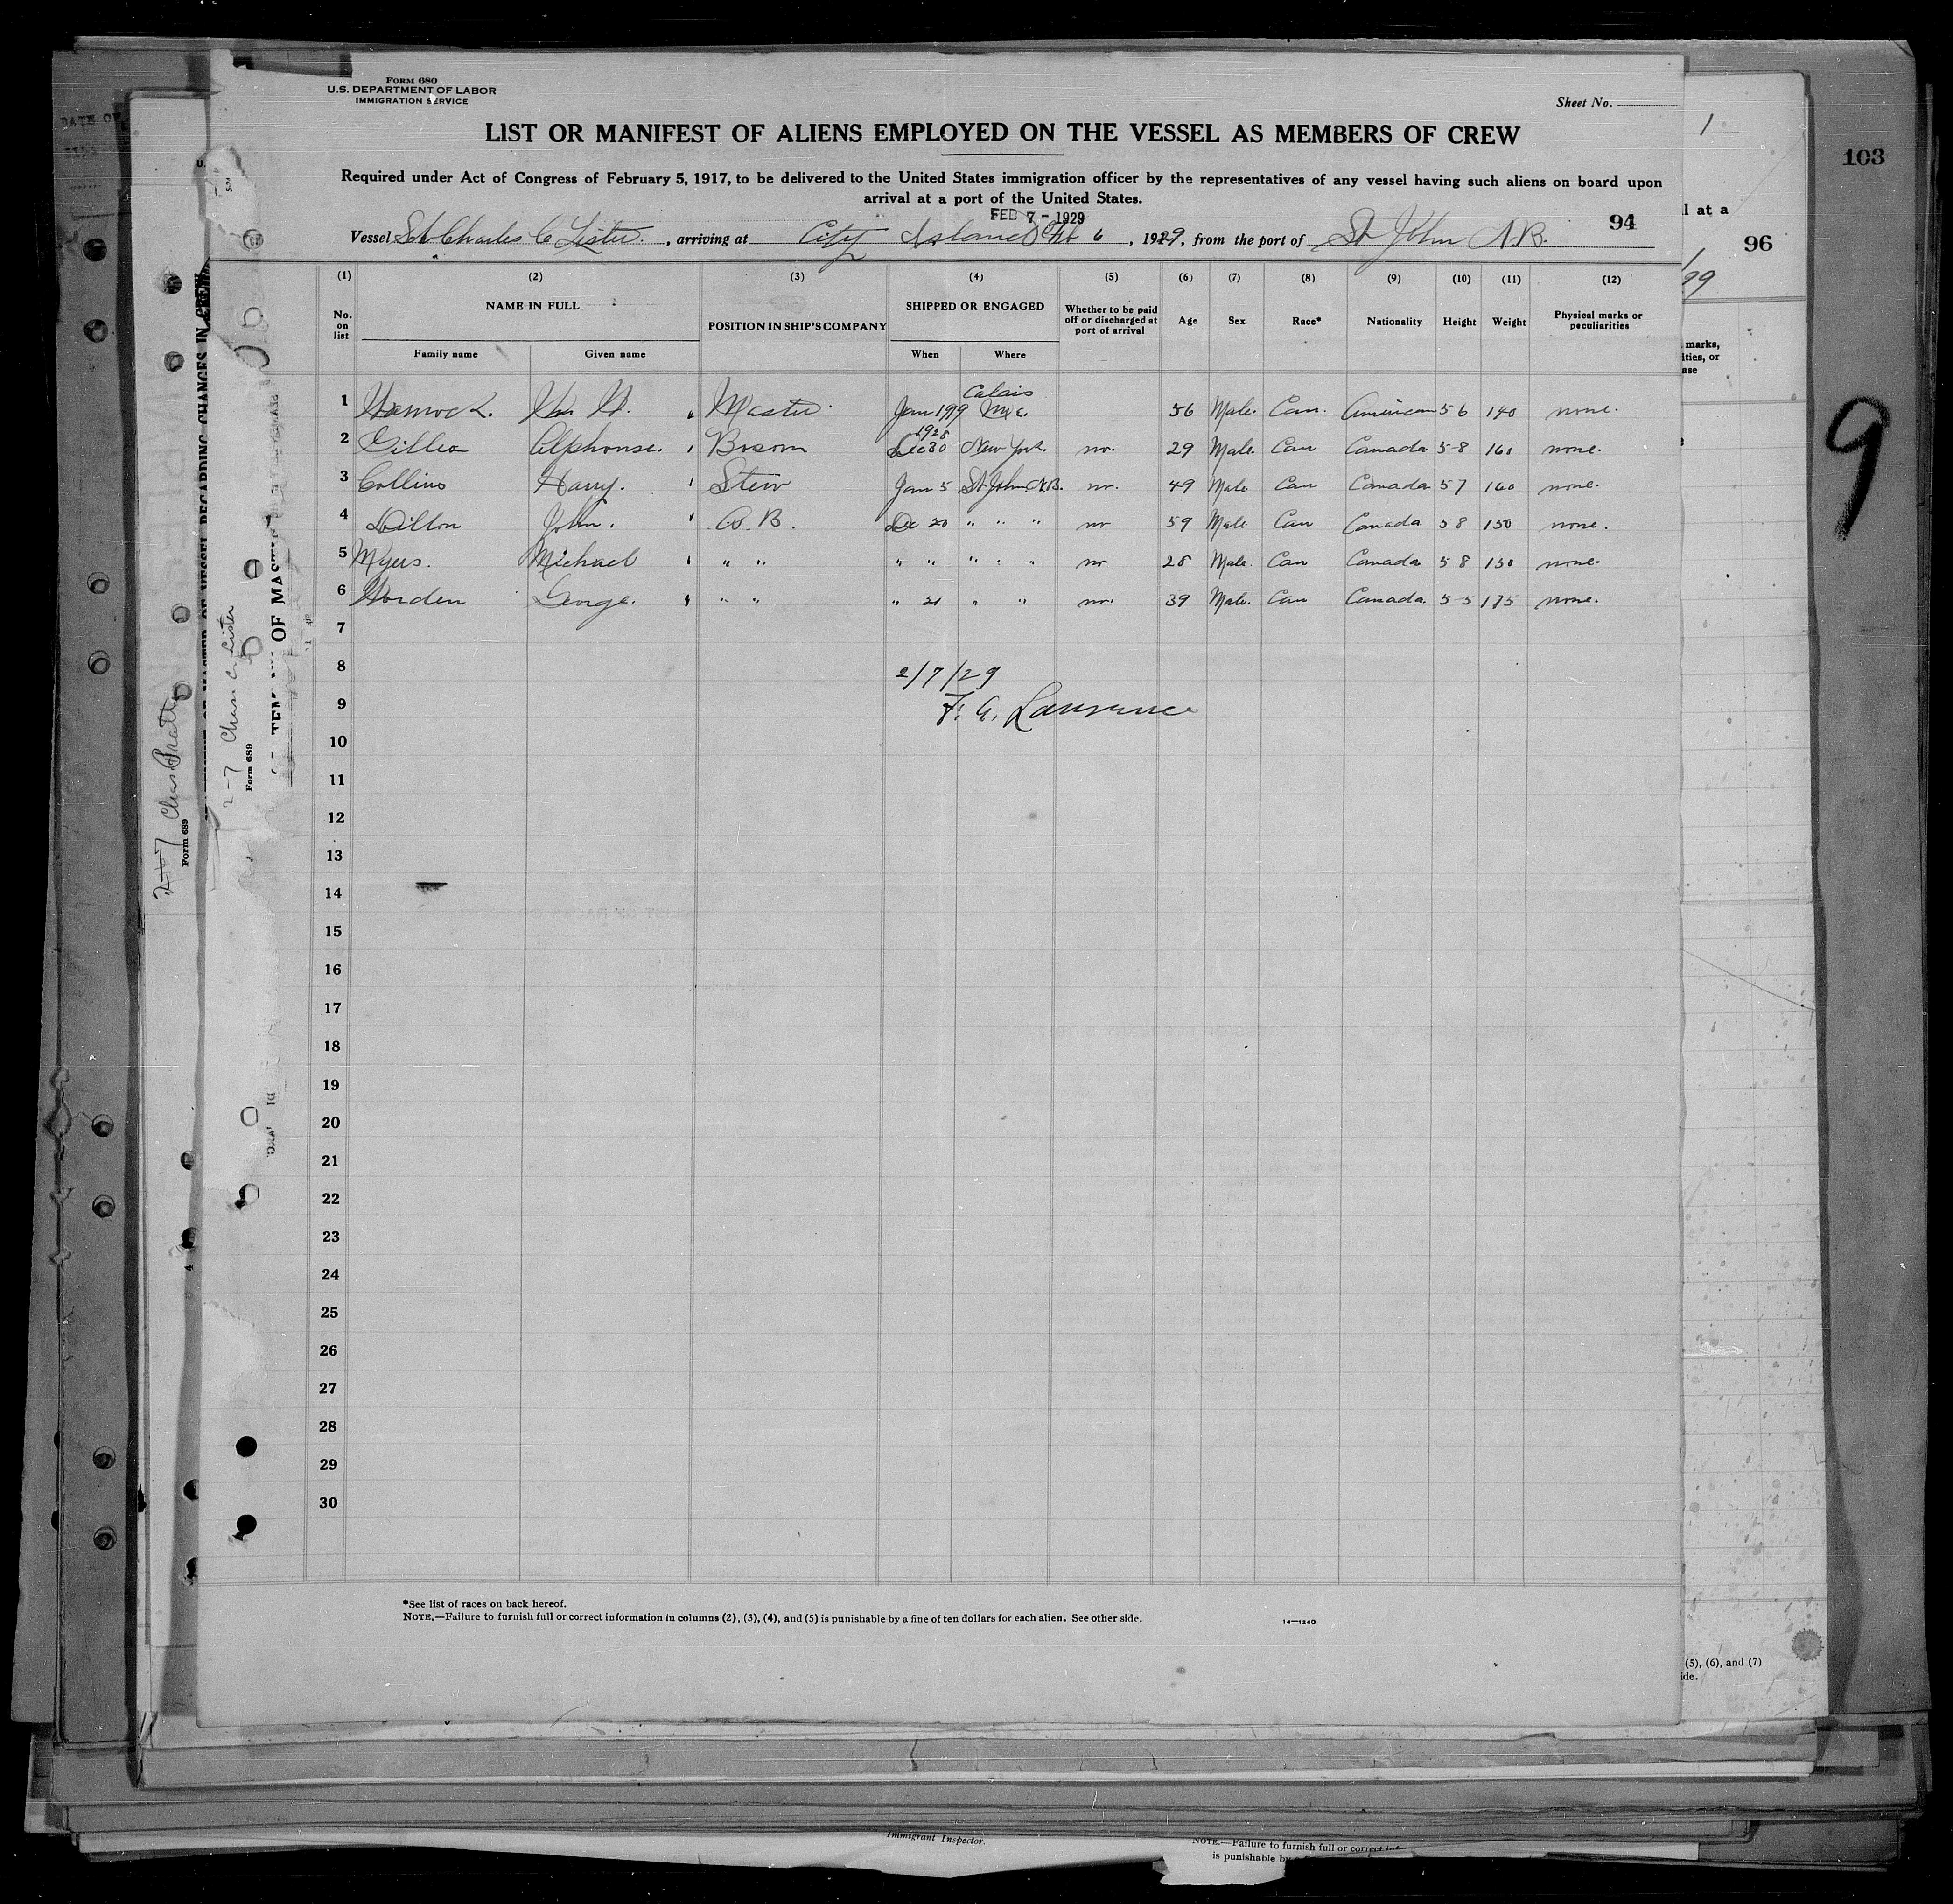 FORM 680
U.S. DEPARTMENT OF LABOR
IMMIGRATION SERVICE
Sheet No.
LIST OR MANIFEST OF ALIENS EMPLOYED ON THE VESSEL AS MEMBERS OF CREW
Required under Act of Congress of February 5, 1917, to be delivered to the United States immigration officer by the representatives of any vessel having such aliens on board upon
arrival at a port of the United States.
FEB 7 - 1929
94
Vessel Sch Charles C Lister, arriving at City Island Feb 6, 1929, from the port of St John N.B.
(1) (2) (3) (4) (5) (6) (7) (8) (9) (10) (11) (12)
No. on list NAME IN FULL POSITION IN SHIP'S COMPANY SHIPPED OR ENGAGED Whether to be paid off or discharged at port of arrival Age Sex Race* Nationality Height Weight Physical marks or peculiarities
Family name Given name When Where
Calais
1 Master Jan 1929 Me. 56 Male. Can. American 5 6 140 none.
1928
2 Gillis Alphonse. Bosom Dec 30 New York. no. 29 Male. Can Canada 5-8 160 none.
3 Collins Harry. Stew Jan 5 St John, N.B. no. 49 Male Can Canada 5 7 160 none.
4 Dillon John. A. B. Dec 20 " " " no 59 Male Can Canada 5 8 150 none.
5 Myers. Michael " " " " " " " no 28 Male. Can Canada 5 8 150 none.
6 Worden George. " " " 21 " " no. 39 Male. Can Canada. 5-5 175 none.
7
8
2/7/29
9
F. A. Lawrence
10
11
12
13
14
15
16
17
18
19
20
21
22
23
24
25
26
27
28
29
30
*See list of races on back hereof.
NOTE.—Failure to furnish full or correct information in columns (2), (3), (4), and (5) is punishable by a fine of ten dollars for each alien. See other side.
14—1240
1
103
l at a
96
marks,
ities, or
ase
9
(5), (6), and (7)
ide.
2-7 Chas C Lister
Form 689
2-7 Chas Pratt
Form 689
Immigrant Inspector.
NOTE.—Failure to furnish full or correct
is punishable by